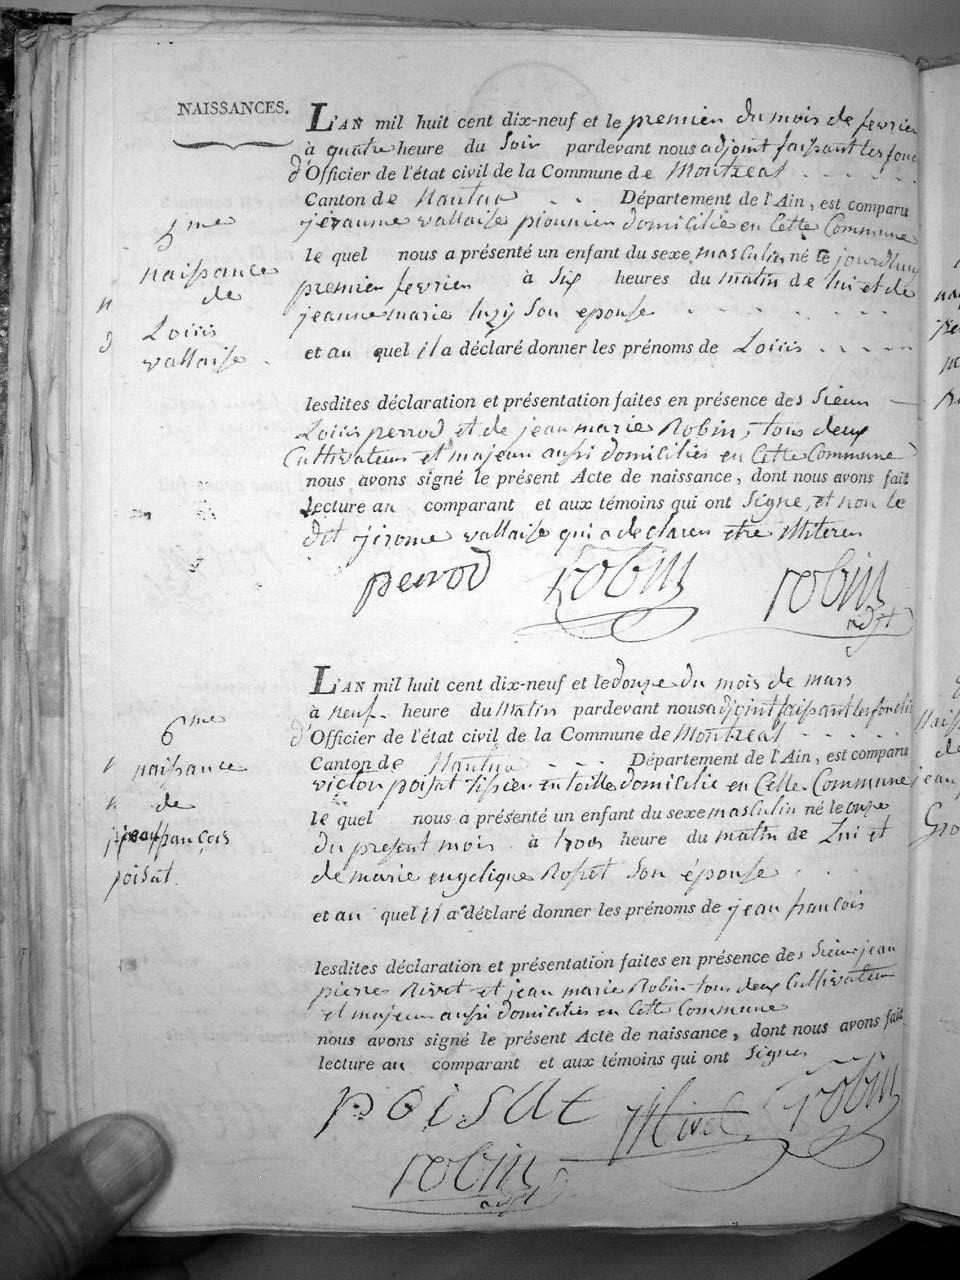 NAISSANCES.
L'AN mil huit cent dix-neuf et le premier du mois de fevrier
à quatre heure du Soir pardevant nous adjoint faisant les fonc
d'Officier de l'état civil de la Commune de Montreal
Canton de Nantua Département de l'Ain, est comparu
jeraume vallaise pionnier domicilié en Cette Commune
le quel nous a présenté un enfant du sexe masculin né le jourdhuy
premier fevrier à Six heures du matin de lui et de
jeanne marie luzy Son epouse
et au quel il a déclaré donner les prénoms de Loüis
lesdites déclaration et présentation faites en présence des Sieurs
Loüis perrod et de jean marie Robin, tous deux
Cultivateurs et majeur aussi domiciliés en Cette Commune
nous avons signé le présent Acte de naissance, dont nous avons fait
lecture au comparant et aux témoins qui ont Signe, et non le
dit jérome vallaise qui a declaren etre illiteren
perrod robin robin
adjt
5me
naissance
de
Loüis
vallaise
L'AN mil huit cent dix-neuf et le douze du mois de mars
à neuf heure du Matin pardevant nous adjoint faisant les fonctio
d'Officier de l'état civil de la Commune de Montreal
Canton de Nantua Département de l'Ain, est comparu
victor poisat tissier en toille domicilié en Cette Commune
le quel nous a présenté un enfant du sexe masculin né le onze
du present mois à trois heure du matin de Lui et
de marie engelique Rosset Son épouse
et au quel il a déclaré donner les prénoms de jean francois
lesdites déclaration et présentation faites en présence des Sieurs jean
pierre Rivet et jean marie Robin tous deux Cultivateur
et majeur aussi domiciliés en Cette Commune
nous avons signé le présent Acte de naissance, dont nous avons fait
lecture au comparant et aux témoins qui ont Signes
poisat Rivet robin
robin
adjt
6me
naissance
de
jean françois
poisat